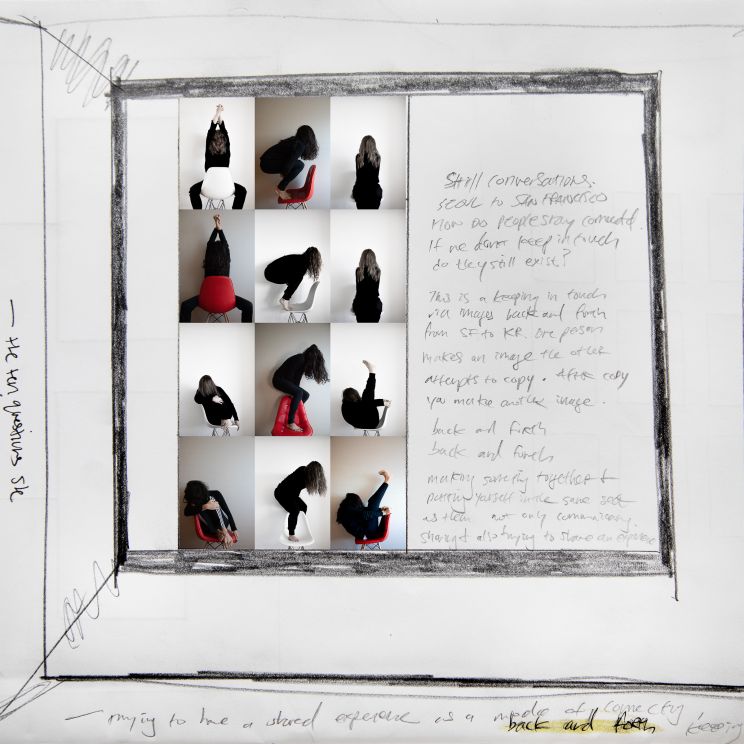 Still conversations.
SEOUL to SAN FRANCISCO
How DO people stay connected.
If we don't keep in touch
do they still exist?
This is a keeping in touch
via images back and forth
from SF to KR. One person
makes an image the other
attempts to copy. After copy
you make another image.
back and forth
back and forth
making something together &
putting yourself in the same seat
as them not only communicating.
sharing also trying to share an experience
— trying to have a shared experience as a mode of connecting
back and forth
keeping